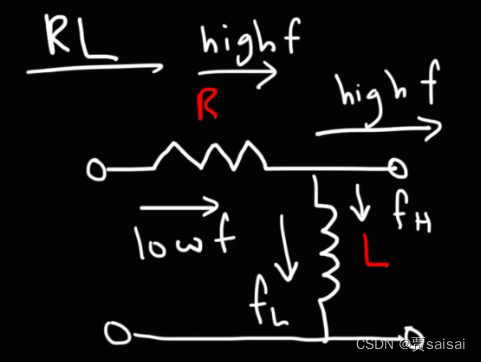 RL
high f
R
high f
low f
f_H
L
f_L
CSDN @贾saisai